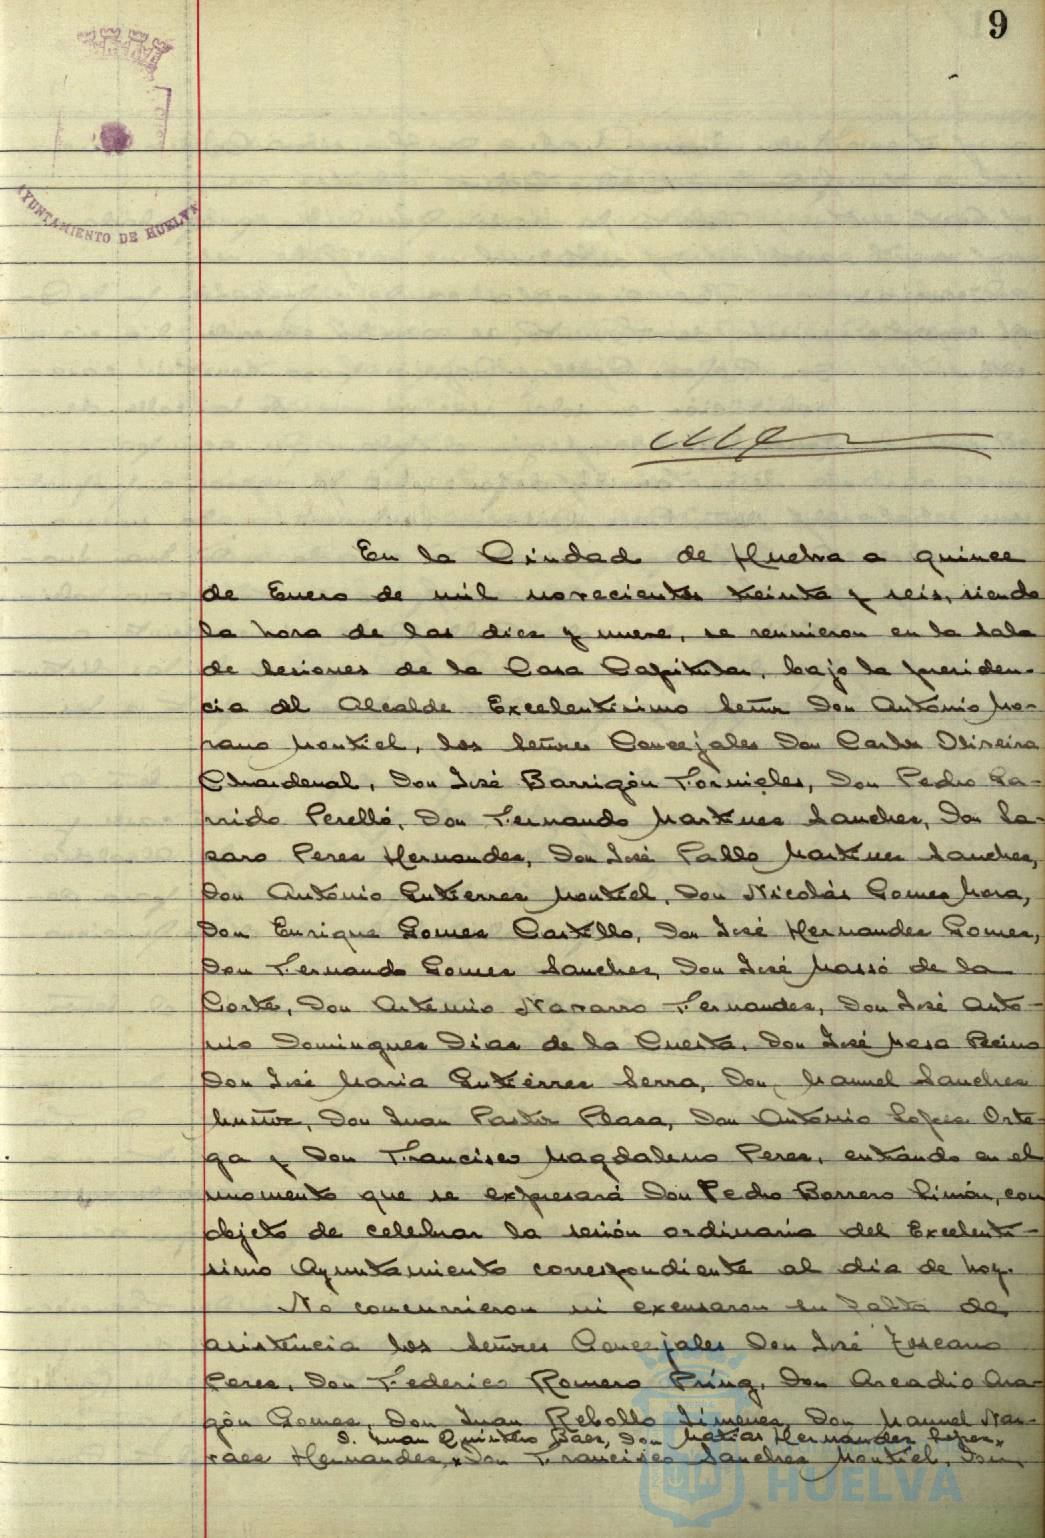 9
AYUNTAMIENTO DE HUELVA
En la Ciudad de Huelva a quince
de Enero de mil novecientos treinta y seis, siendo
la hora de las diez y nueve, se reunieron en la sala
de sesiones de la Casa Capitular, bajo la presiden-
cia del Alcalde Excelentisimo Señor Don Antonio Mo-
rano Montiel, los Señores Concejales Don Carlos Oliveira
Chardenal, Don José Barrigón Fornieles, Don Pedro Ga-
rrido Perelló, Don Fernando Martinez Sanchez, Don La-
zaro Perez Hernandez, Don José Pablo Martinez Sanchez,
Don Antonio Gutierrez Montiel, Don Nicolás Gomez Mora,
Don Enrique Gomez Castillo, Don José Hernandez Gomez,
Don Fernando Gomez Sanchez, Don José Massó de la
Corte, Don Artemio Navarro Fernandez, Don José Anto-
nio Dominguez Diaz de la Cuesta, Don José Mesa Reino
Don José Maria Gutiérrez Serra, Don Manuel Sanchez
Muñoz, Don Juan Pastor Plaza, Don Antonio Lopez Orte-
ga y Don Francisco Magdaleno Perez, entrando en el
momento que se expresará Don Pedro Borrero Limón, con
objeto de celebrar la sesión ordinaria del Excelenti-
simo Ayuntamiento correspondiente al dia de hoy.
No concurrieron ni excusaron su falta de
asistencia los Señores Concejales Don José Toscano
Perez, Don Federico Romero Pring, Don Arcadio Ara-
gón Gomez, Don Juan Rebollo Jimenez, Don Manuel Nar-
D. Juan Quintero Báez, Don Matias Hernandez Lopez,
vaez Hernandez, Don Francisco Sanchez Montiel, Don
HUELVA